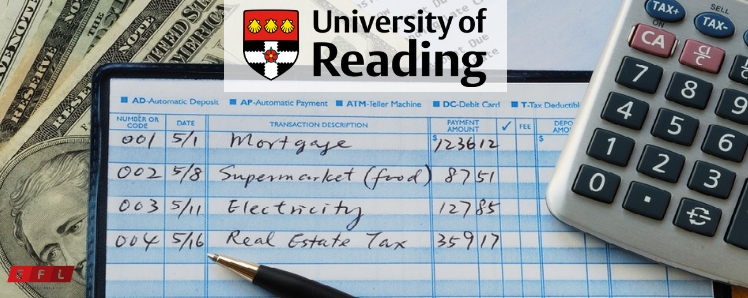 University of
Reading
AD-Automatic Deposit AP-Automatic Payment ATM-Teller Machine DC-Debit Card T-Tax Deductibl
NUMBER OR CODE DATE TRANSACTION DESCRIPTION PAYMENT AMOUNT ✓ FEE DEPO AMO
$ $
001 5/1 Mortgage 123612
002 5/8 Supermarket (food) 8751
003 5/11 Electricity 12785
004 5/16 Real Estate Tax 35917
TAX+ TAX-
ON SELL
CA C/CE
7 8 9
4 5 6
1 2 3
0 .
SFL